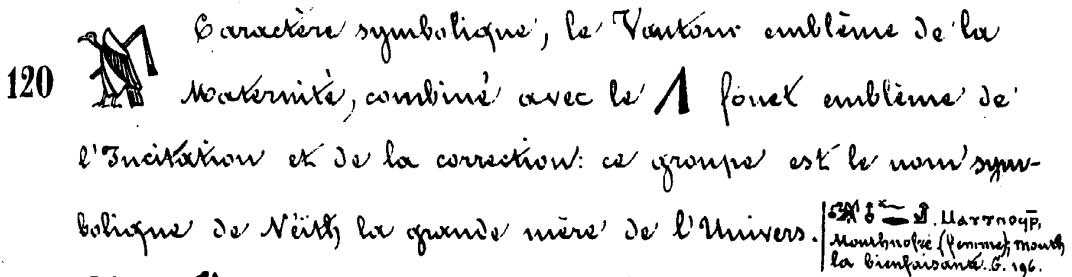 Caractère symbolique, le Vautour emblème de la
120 Maternité, combiné avec le fouet emblème de
l'Incitation et de la correction: ce groupe est le nom sym-
bolique de Néith, la grande mère de l'Univers.
Mouthnofré (femme), mouth
la bienfaisante. G. 196.